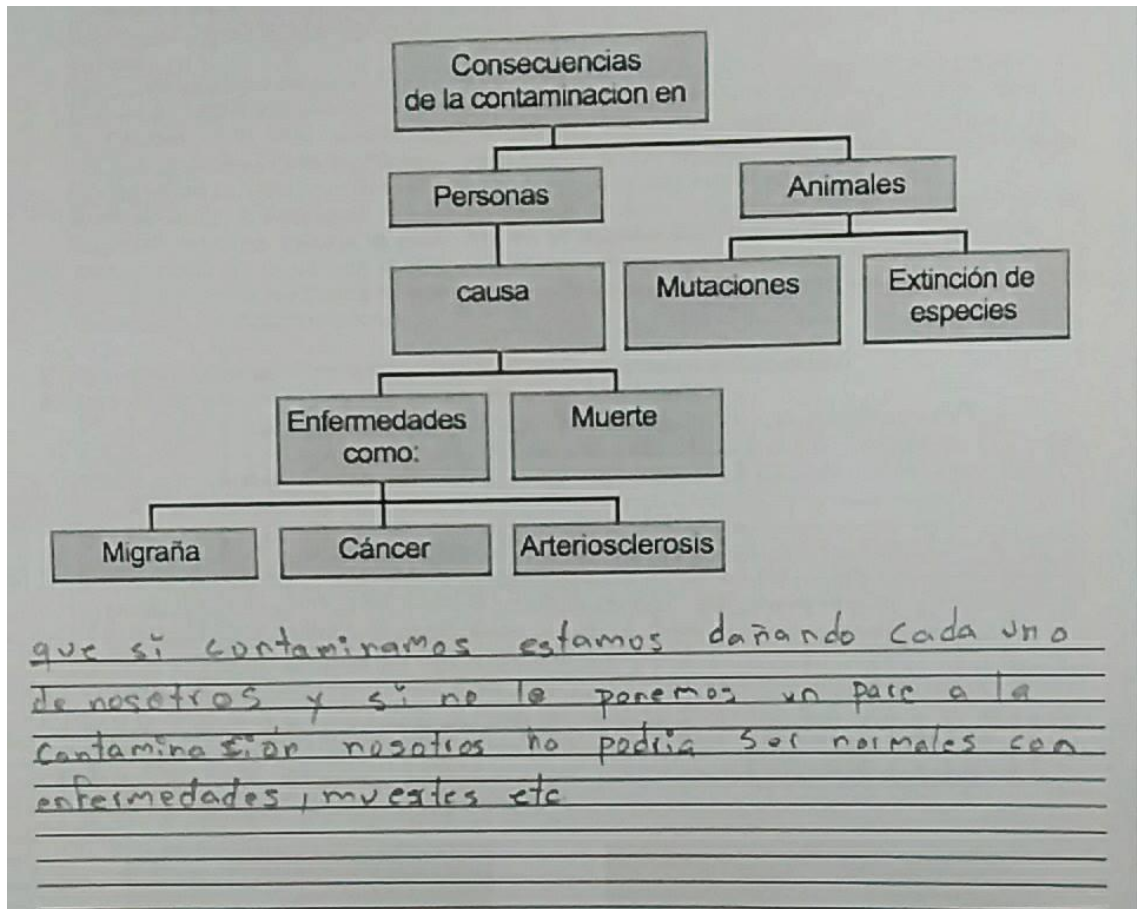 Consecuencias
de la contaminacion en
Personas
Animales
causa
Mutaciones
Extinción de
especies
Enfermedades
como:
Muerte
Migraña
Cáncer
Arteriosclerosis
que si contaminamos estamos dañando cada uno
de nosotros y si no le ponemos un pare a la
contaminasión nosotros no podria ser normales con
enfermedades, muertes etc